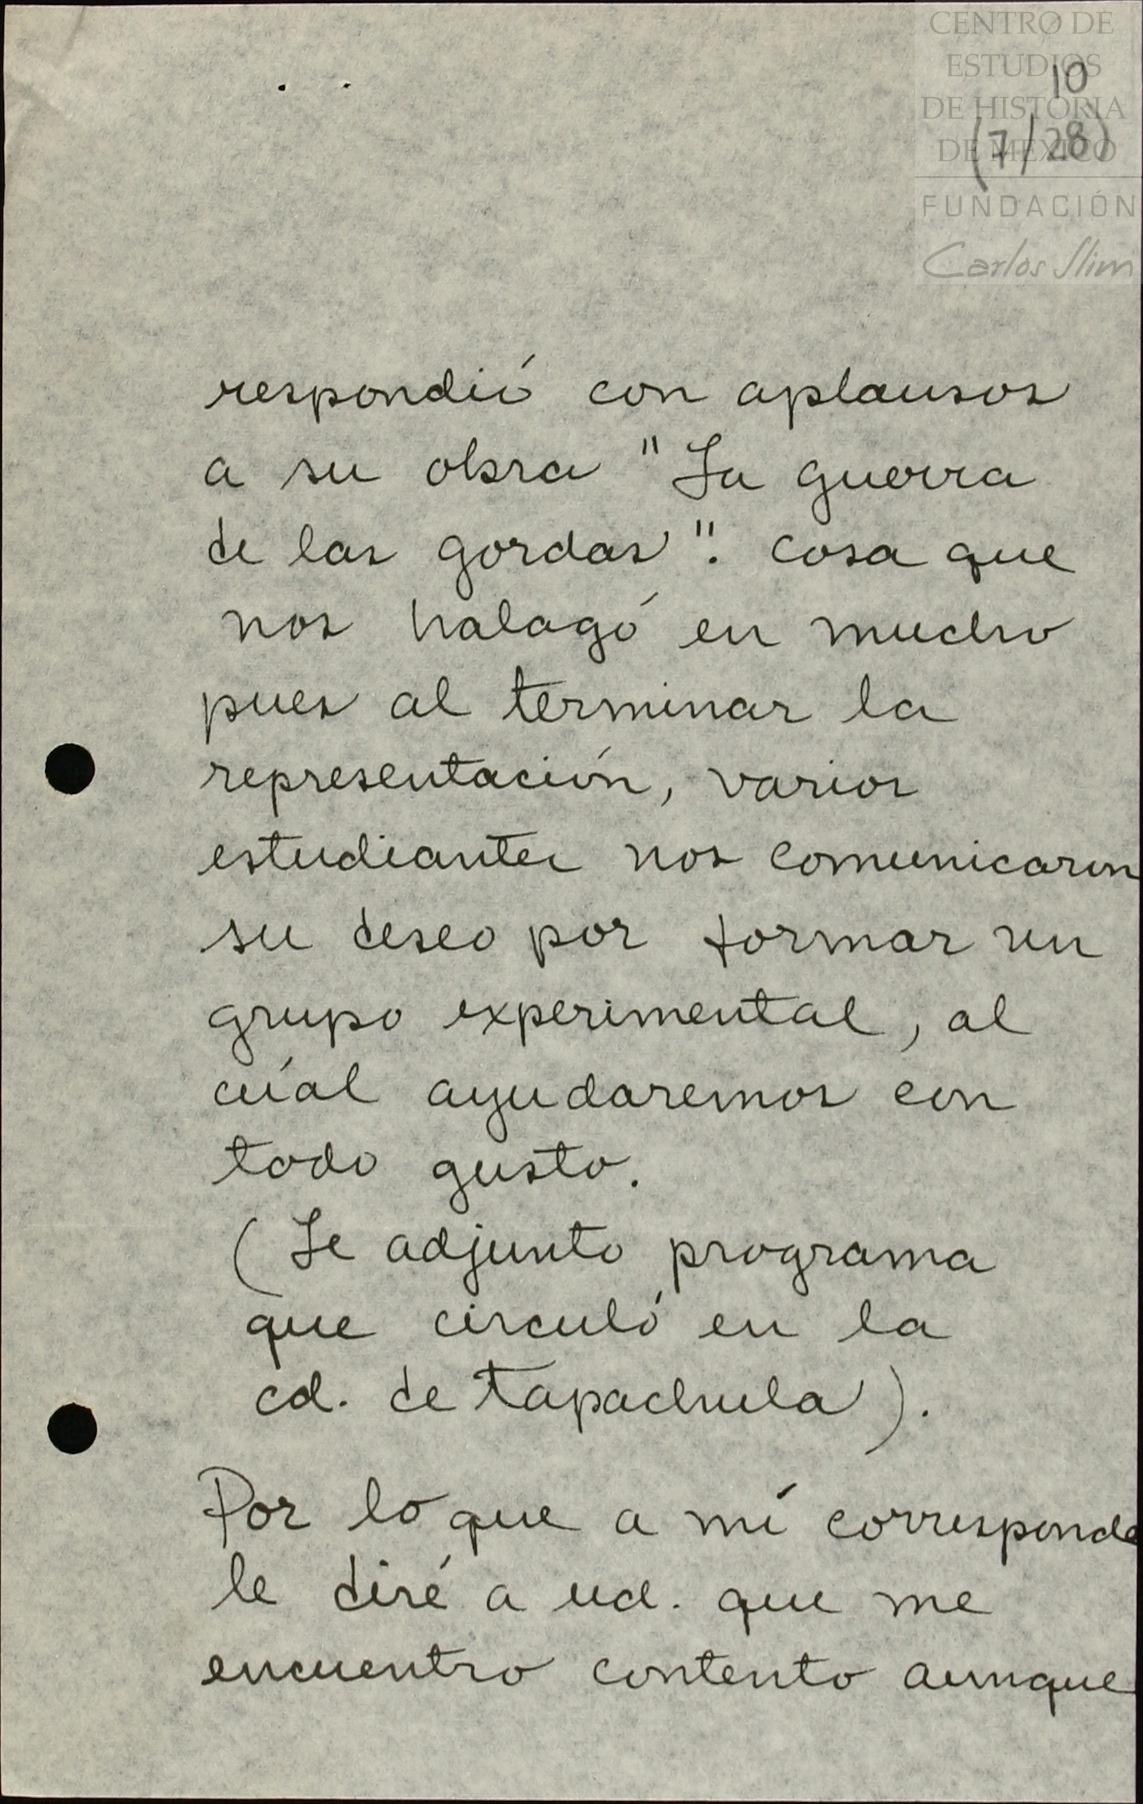 CENTRO DE
ESTUDIOS
10
DE HISTORIA
(7/28)
DE MÉXICO
FUNDACIÓN
Carlos Slim
respondió con aplausos
a su obra "La guerra
de las gordas". cosa que
nos halagó en mucho
pues al terminar la
representación, varios
estudiantes nos comunicaron
su deseo por formar un
grupo experimental, al
cúal ayudaremos con
todo gusto.
(Le adjunto programa
que circuló en la
cd. de tapachula).
Por lo que a mí corresponde
le diré a ud. que me
encuentro contento aunque